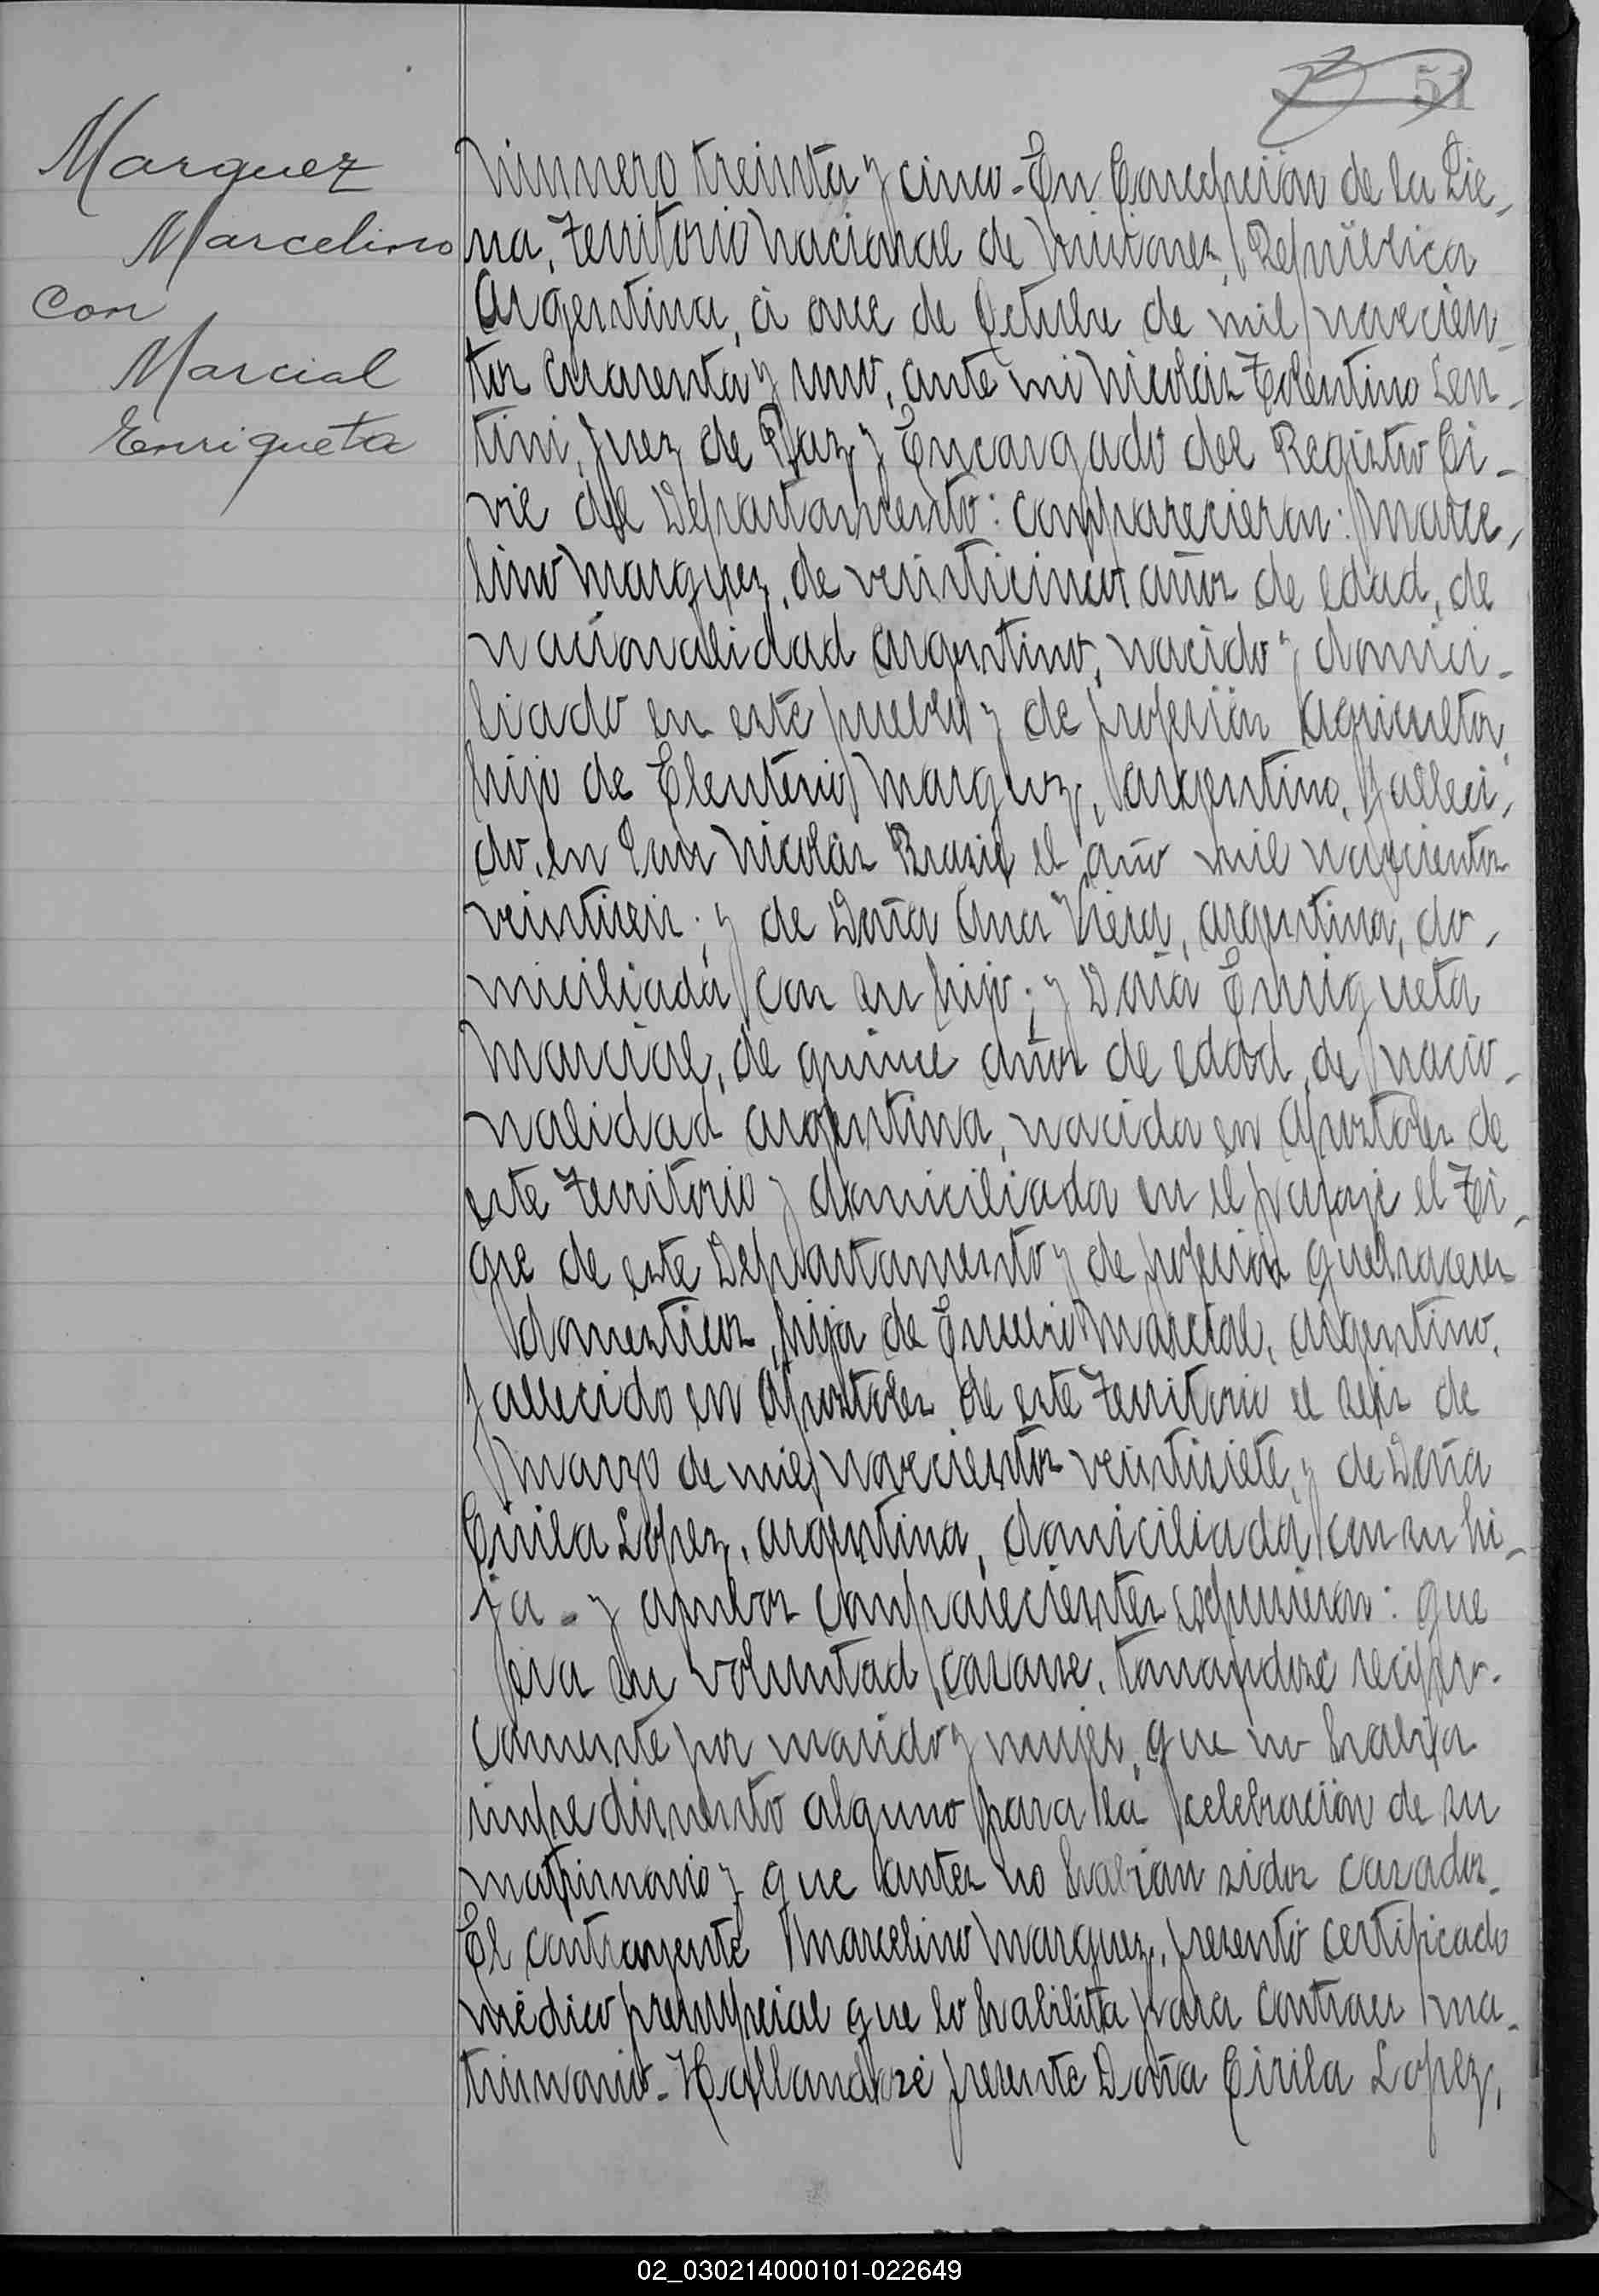 51
Marquez
Marcelino
Con
Marcial
Enriqueta
Número treinta y cinco - En Concepción de la Sie-
rra, Territorio Nacional de Misiones, República
Argentina, á once de Octubre de mil novecien-
tos cuarenta y uno, ante mi Nicolás Tolentino Len-
tini, Juez de Paz y Encargado del Registro Ci-
vil del Departamento: comparecieron: Marce-
lino Marquez, de veinticinco años de edad, de
nacionalidad argentino, nacido y domici-
liado en este pueblo y de profesión agricultor,
hijo de Eleuterio Marquez, argentino, falleci-
do, en San Nicolás Brasil el año mil novecientos
veintiseis; y de Doña Ana Viera, argentina, do-
miciliada con su hijo; y Doña Enriqueta
Marcial, de quince años de edad, de nacio-
nalidad argentina, nacida en Apostoles de
este Territorio y domiciliada en el paraje el Ti-
gre de este Departamento y de profesion quehaceres
domesticos, hija de Eusebio Marcial, argentino,
fallecido en Apostoles de este Territorio el seis de
Marzo de mil novecientos veintisiete, y de Doña
Cirila Lopez, argentina, domiciliada con su hi-
ja - y ambos comparecientes expusieron: que
era su voluntad casarse, tomandose recipro-
camente por marido y mujer, que no habia
impedimento alguno para la celebración de su
matrimonio y que antes no habian sidos casados.
El contrayente Marcelino Marquez, presentó certificado
médico prenupcial que lo habilita para contraer ma-
trimonio - Hallandose presente Doña Cirila Lopez,
02_030214000101-022649